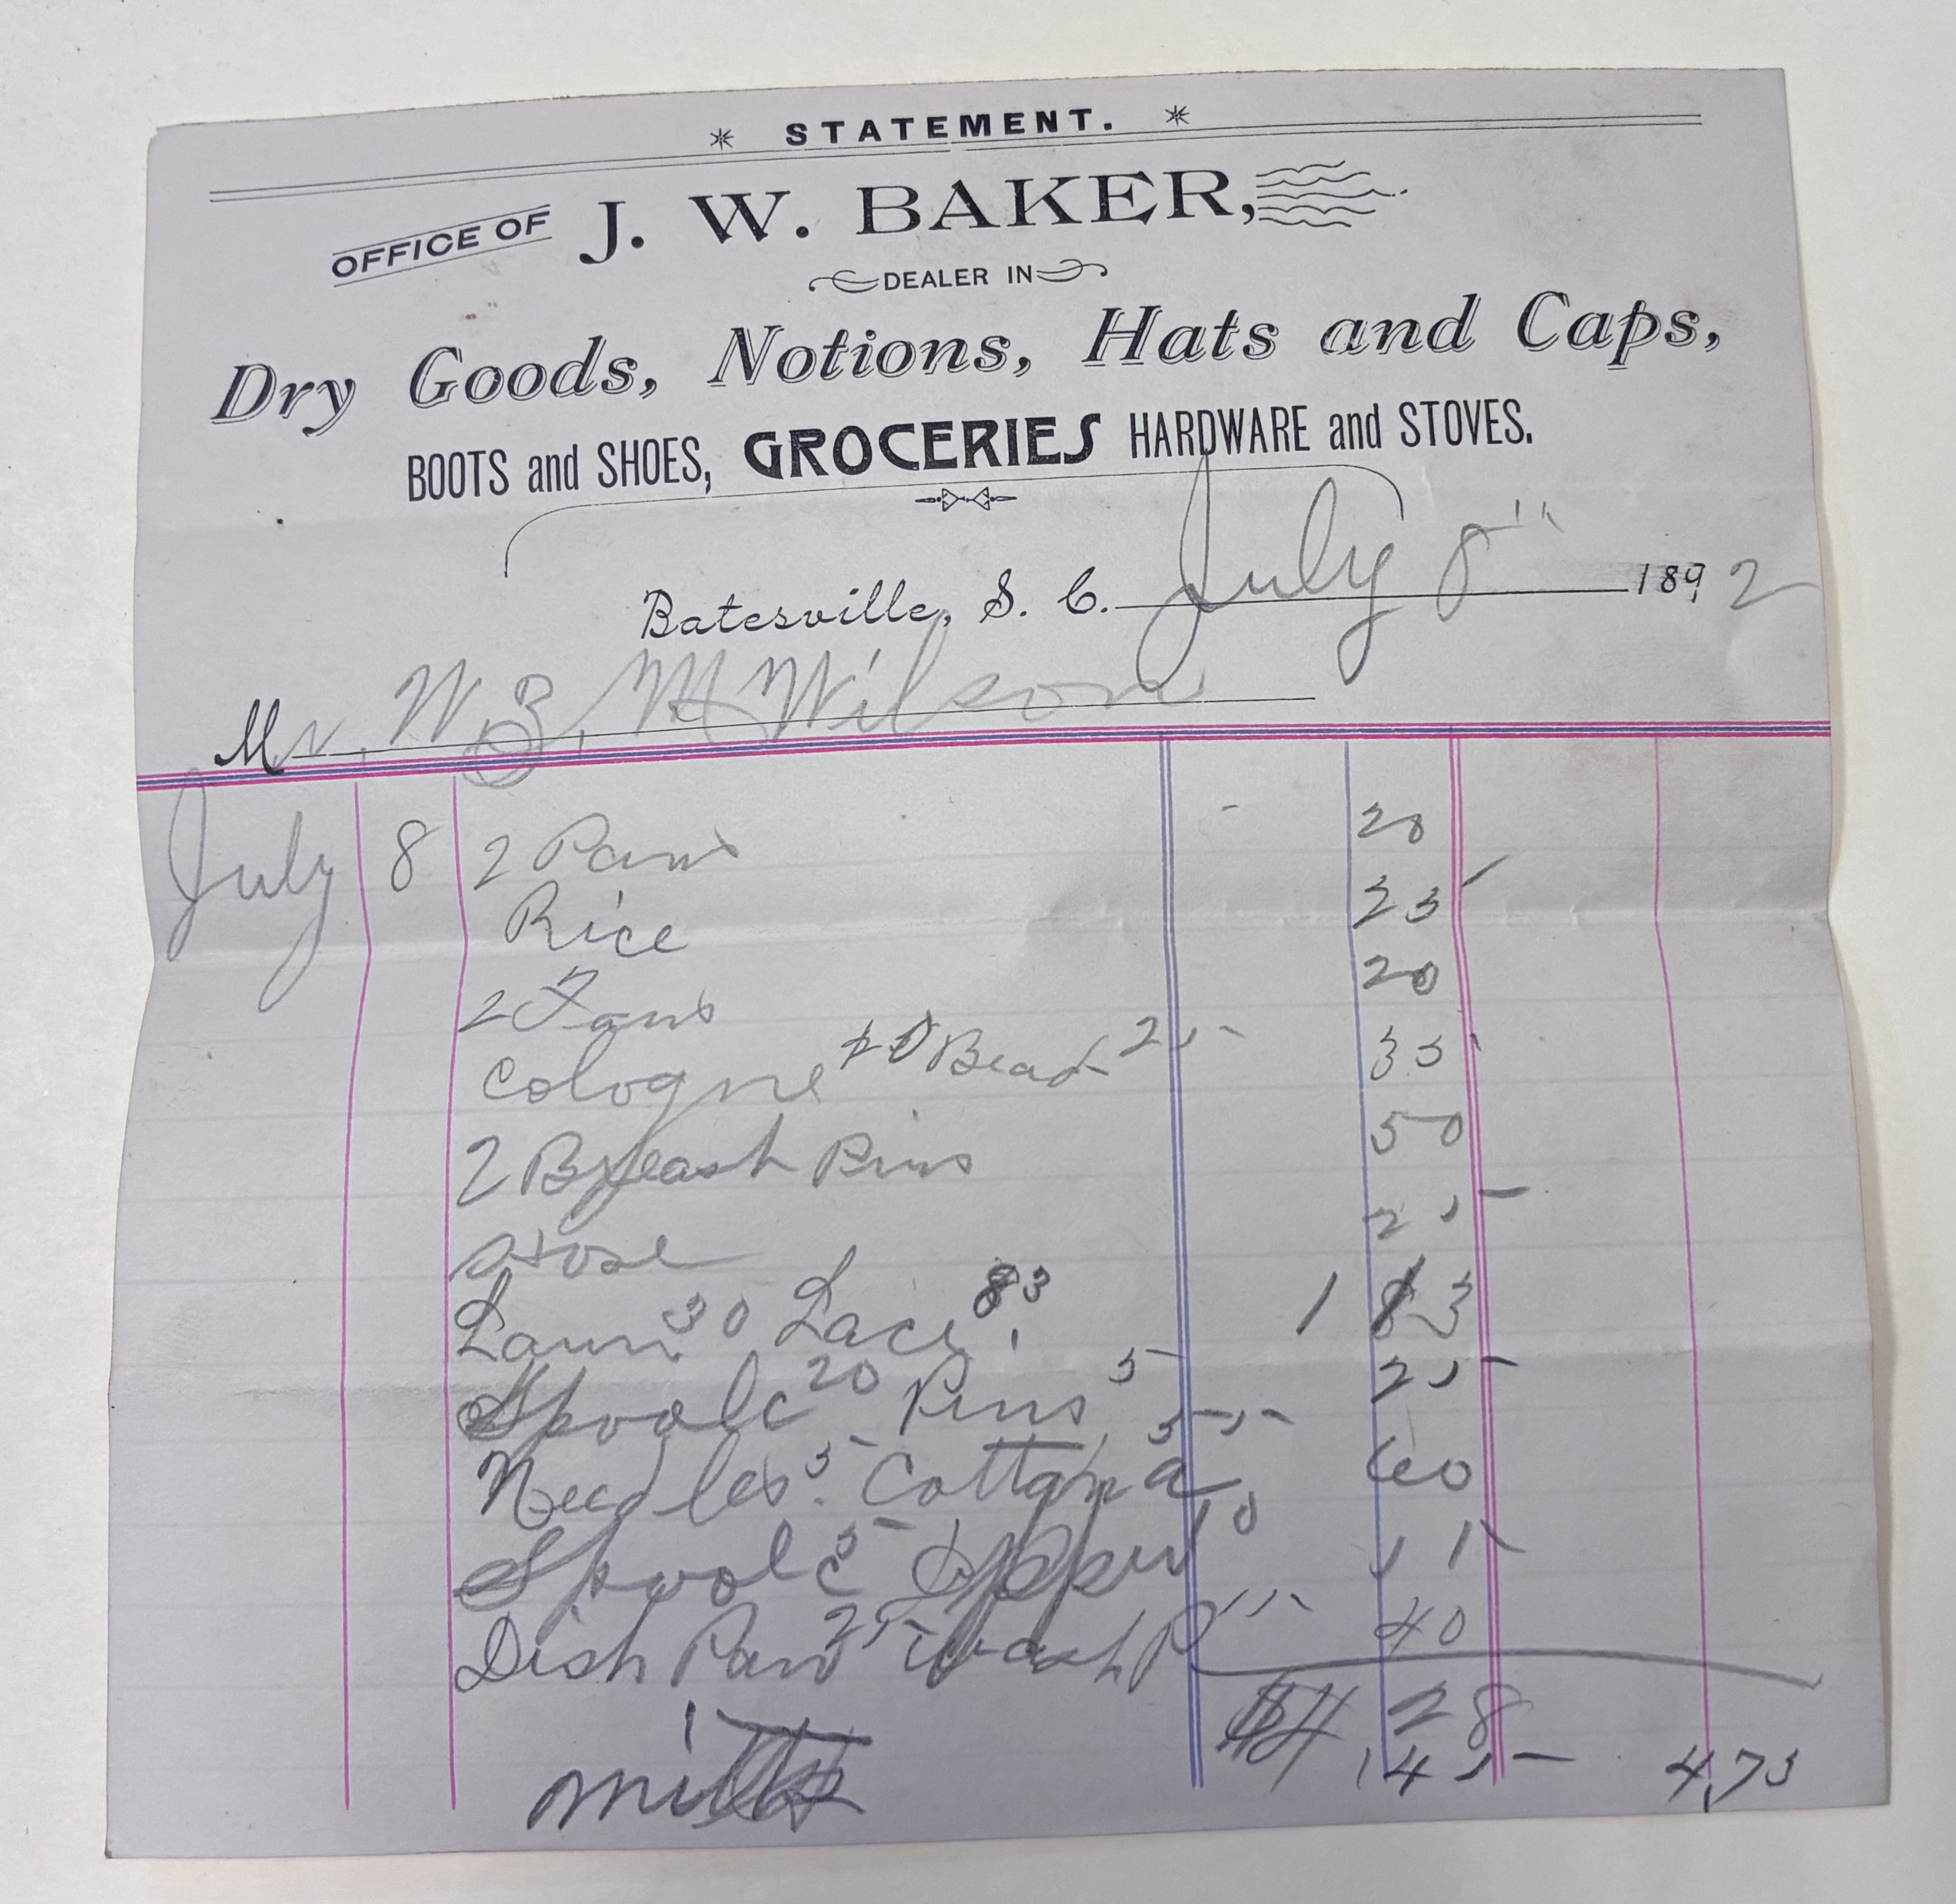 STATEMENT.
OFFICE OF J. W. BAKER,
DEALER IN
Dry Goods, Notions, Hats and Caps,
BOOTS and SHOES, GROCERIES HARDWARE and STOVES.
Batesville, S. C. July 8" 1892
Mr. W. B. McWilson
July 8 2 Pans 20
Rice 25
2 Fans 20
Cologne 10 Beads 25 35
2 Breast Pins 50
Hose 25
Lawn 30 Lace 83 1 13
Spool c 20 Pins 5 25
Needles 5 Cottona 55 60
Spool c 5 10 15
Dish Pan 25 Wash P 15 40
$4 28
45 4.73